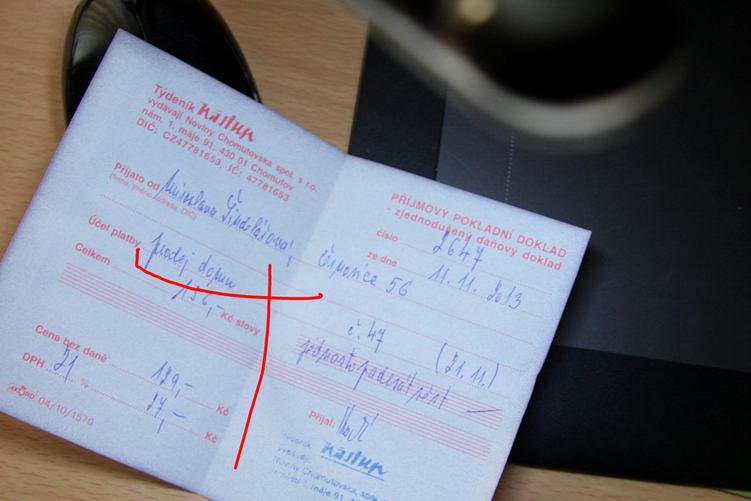 Týdeník nástup
vydávají Noviny Chomutovska spol. s r.o.
nám. 1. máje 91, 430 01 Chomutov
DIČ: CZ47781653, IČ: 47781653
PŘÍJMOVÝ POKLADNÍ DOKLAD
- zjednodušený daňový doklad
číslo 2647
ze dne 11.11.2013
Přijato od Miroslava Šindelářová,
(firma, jméno, adresa, DIČ)
56
Účel platby prodej
č. 47 (21.11.)
Celkem 156,- Kč slovy jednostopadesátšest
Cena bez daně 129,- Kč
DPH 21 % 27,- Kč
Přijal:
04/10/1570
týdeník nástup
vydávají
Noviny Chomutovska spol.
nám. 1. máje 91, 43